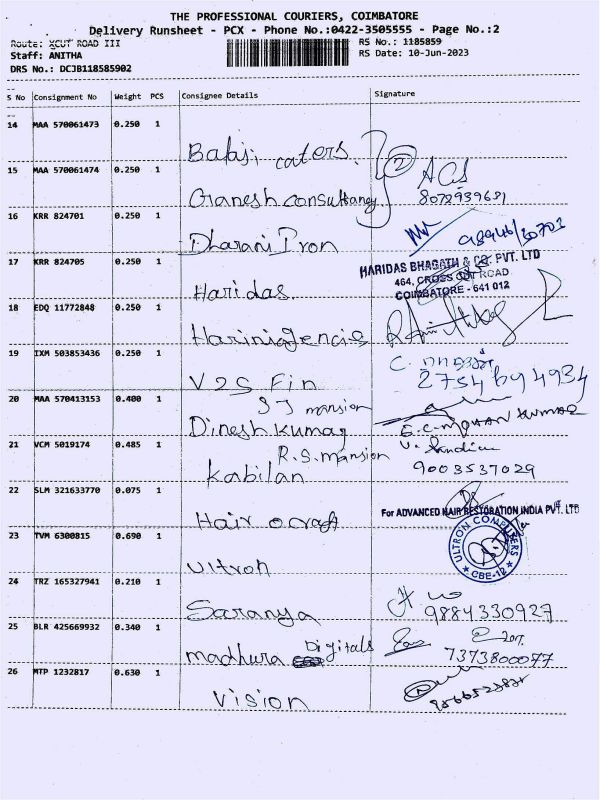 THE PROFESSIONAL COURIERS, COIMBATORE
Delivery Runsheet - PCX - Phone No.:0422-3505555 - Page No.:2
Route: XCUT ROAD III
RS No.: 1185859
Staff: ANITHA
RS Date: 10-Jun-2023
DRS No.: DCJB118585902
S No Consignment No Weight PCS Consignee Details Signature
14 MAA 570061473 0.250 1
Balaji caters. 2
15 MAA 570061474 0.250 1
Ganesh consultancy
8072939631
16 KRR 824701 0.250 1
Dharani Iron
17 KRR 824705 0.250 1
HARIDAS BHAGATH & CO. PVT. LTD
464, CROSS CUT ROAD
COIMBATORE - 641 012
Haridas.
18 EDQ 11772848 0.250 1
Harinigencies
19 IXM 503853436 0.250 1
V2S Fin
2754 694934
20 MAA 570413153 0.400 1
SJ mansion
Dinesh Kumar
E.C. MOHAN KUMAR
21 VCM 5019174 0.485 1
R.S. mansion
Kabilan
9003537029
22 SLM 321633770 0.075 1
For ADVANCED HAIR RESTORATION INDIA PVT. LTD
Hair o craft
23 TVM 6300815 0.690 1
ULTRON COMPUTERS
CBE-12
Ultron
24 TRZ 165327941 0.210 1
Saranya
9884330927
25 BLR 425669932 0.340 1
madhura Digitals
7373800077
26 MTP 1232817 0.630 1
Vision